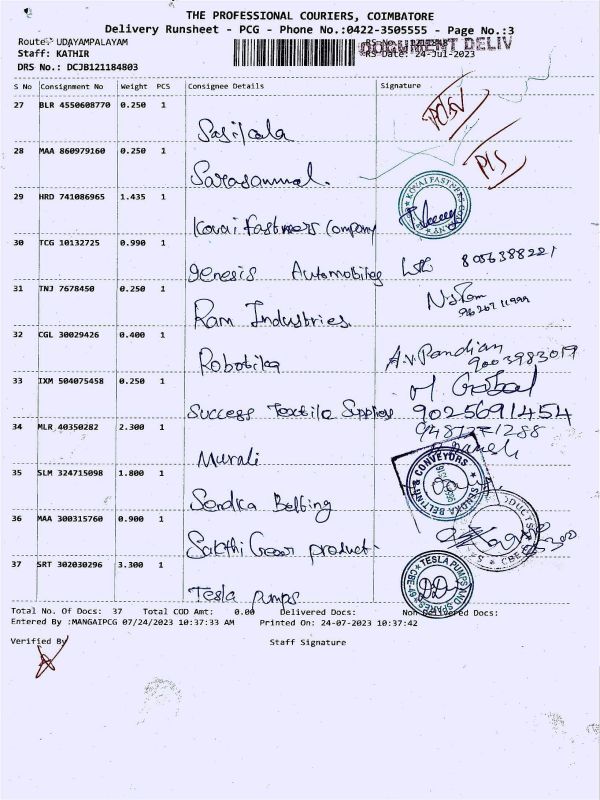 THE PROFESSIONAL COURIERS, COIMBATORE
Delivery Runsheet - PCG - Phone No.:0422-3505555 - Page No.:3
Route: UDAYAMPALAYAM
Staff: KATHIR DRS Date: 24-Jul-2023
DRS No.: DCJB121184803
DOCUMENT DELIV
S No Consignment No Weight PCS Consignee Details Signature
27 BLR 4550608770 0.250 1
Sasikala
28 MAA 860979160 0.250 1
Sarasammal.
29 HRD 741086965 1.435 1
KOVAI FASTNERS COMPANY
Kovai Fastners Company
30 TCG 10132725 0.990 1
Genesis Automobiles 8056388221
31 TNJ 7678450 0.250 1
Ram Industries
32 CGL 30029426 0.400 1
Robotika A.V. Pandian 9003983019
33 IXM 504075458 0.250 1
Success Textile Supplies 9025691454
34 MLR 40350282 2.300 1
Murali
35 SLM 324715098 1.800 1
SENDKA BELTING & CONVEYORS
Sendka Belting
36 MAA 300315760 0.900 1
Sakthi Gear product
37 SRT 302030296 3.300 1
TESLA PUMPS AND SPARES CBE-49
Tesla pumps
Total No. Of Docs: 37 Total COD Amt: 0.00 Delivered Docs: Non Delivered Docs:
Entered By :MANGAIPCG 07/24/2023 10:37:33 AM Printed On: 24-07-2023 10:37:42
Verified By Staff Signature